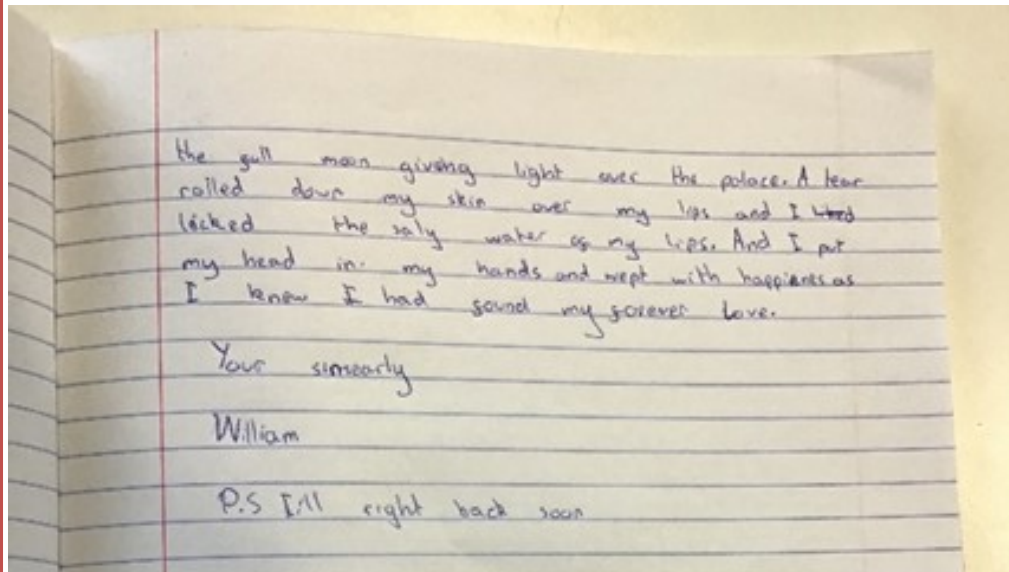 the gull moon giving light over the palace. A tear
rolled down my skin over my lips and I
licked the saly water of my lips. And I put
my head in. my hands and wept with happienes as
I knew I had found my forever love.
Your sincearly
William
P.S I,ll right back soon